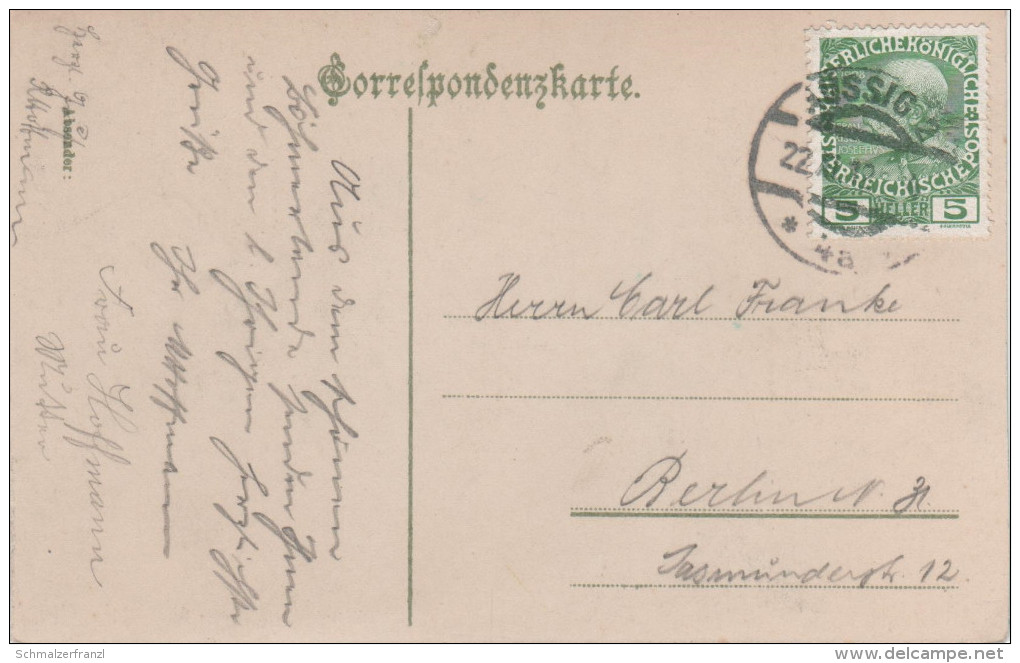 Correspondenzkarte.
Absender:
Aus dem schönen
Böhmerlande senden Ihnen
und den l. Ihrigen herzlichste
Grüße
Ihr
Frau Hoffmann
Mutter
KAISERLICHE KÖNIGLICHE
ÖSTERREICHISCHE POST
5 HELLER 5
AUSSIG 2
22
* 4a
Herrn Carl Franke
Berlin N. 31
Sasmünderstr. 12.
Schmalzerfranzl
www.delcampe.net